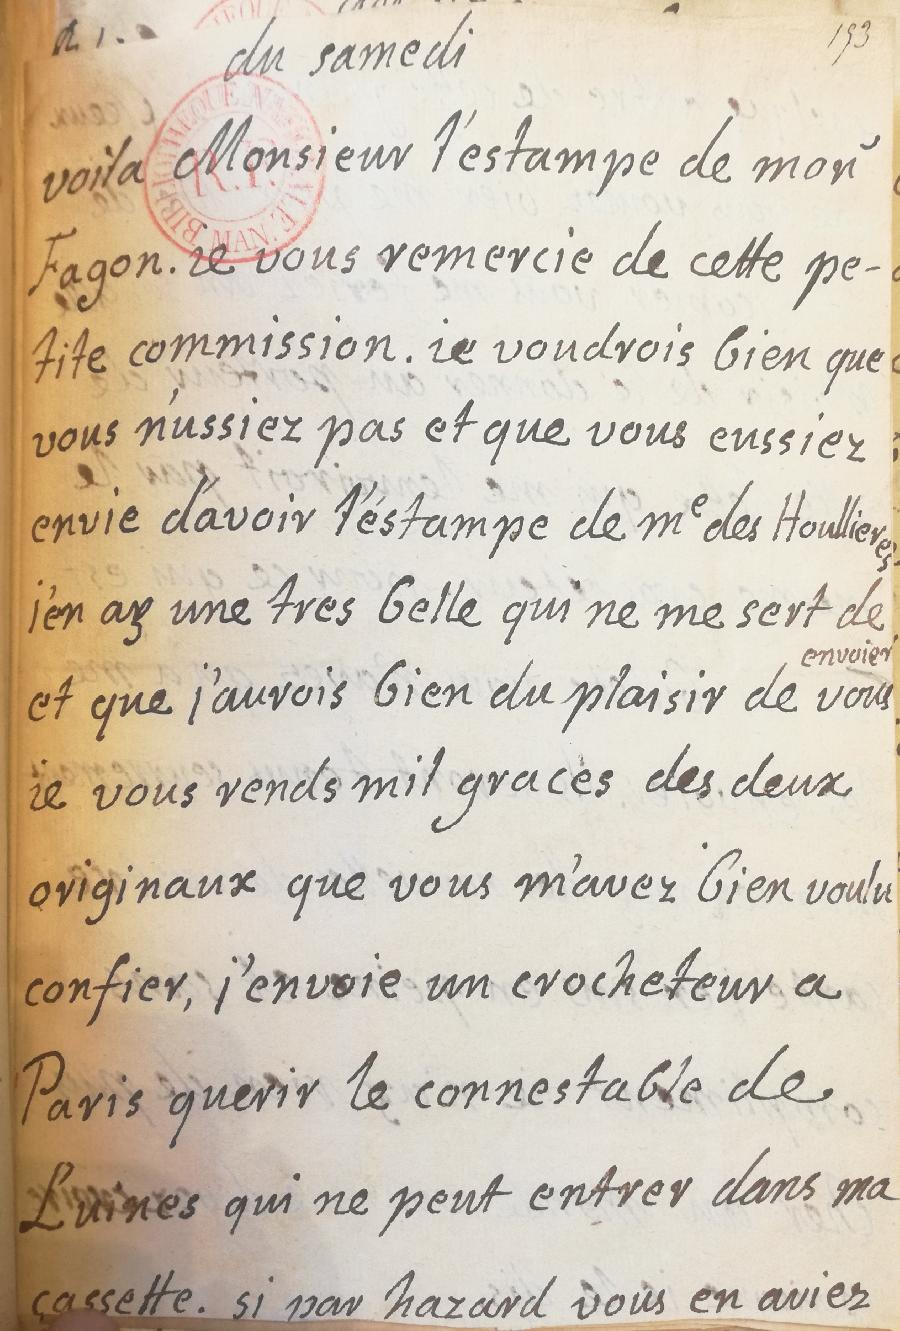 R 1.
193
du samedi
voila Monsieur l'estampe de monr
Fagon. ie vous remercie de cette pe-
tite commission. ie voudrois bien que
vous n'ussiez pas et que vous eussiez
envie d'avoir l'estampe de me des Houllieres
j'en ay une tres belle qui ne me sert de
envoier
et que j'aurois bien du plaisir de vous
ie vous rends mil graces des deux
originaux que vous m'avez bien voulu
confier, j'envoie un crocheteur a
Paris querir le connestable de
Luines qui ne peut entrer dans ma
cassette. si par hazard vous en aviez